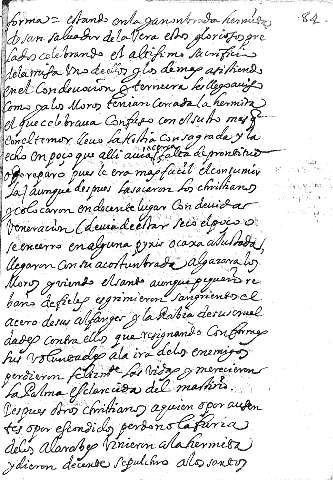 84.
forma = estando en la ya nonbrada hermita
de san saluador de la Vera estos gloriosos pre
lados celebrando el altissimo sacrificio
de la misa Uno de ellos y los demas asistiendo
en el con deuocion y ternura les llego auiso
como ya los Moros tenian cercada la hermita
el que celebraua Confuso con el susto mas q̃
con el temor lleuo la Hostia Consagrada y la
echo en poço que alli auia falta de prontitud
o reparo pues le era mas facil el consumir
la / aunque despues la sacaron los christianos
y colocaron en decente lugar con deuida
Veneracion (deuia de estar seco el poço o
se encerro en alguna pyxis o caxa ajustada,
llegaron con su acostunbrada algazara los
Moros y viendo el santo aunque pequeño re
baño de fieles esgrimieron sangriento el
acero de sus alfanges y la Rabia de su cruel
dad contra ellos que resignando conformes
sus Voluntades a la ira de los enemigos
perdieron las Vidas y merecieron
la Palma esclarecida del martirio.
Despues otros christianos a quien o por auden
tes o por escondidos perdono la furia
de los Alarabes Vinieron a la hermita
y dieron decente sepulchro a los santos